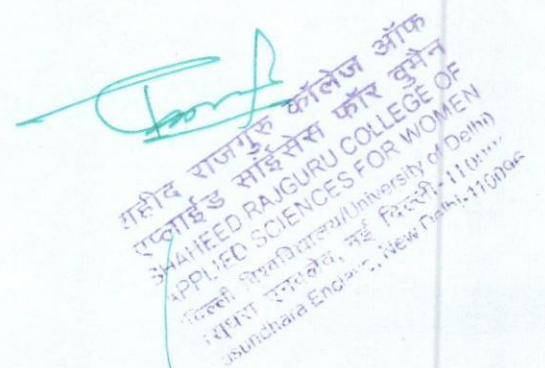 शहीद राजगुरु कॉलेज ऑफ
एप्लाईड साईसेस फॉर वुमैन
SHAHEED RAJGURU COLLEGE OF
APPLIED SCIENCES FOR WOMEN
दिल्ली विश्वविद्यालय/University of Delhi)
एनक्लेव, नई दिल्ली-
Enclave, New Delhi-110096